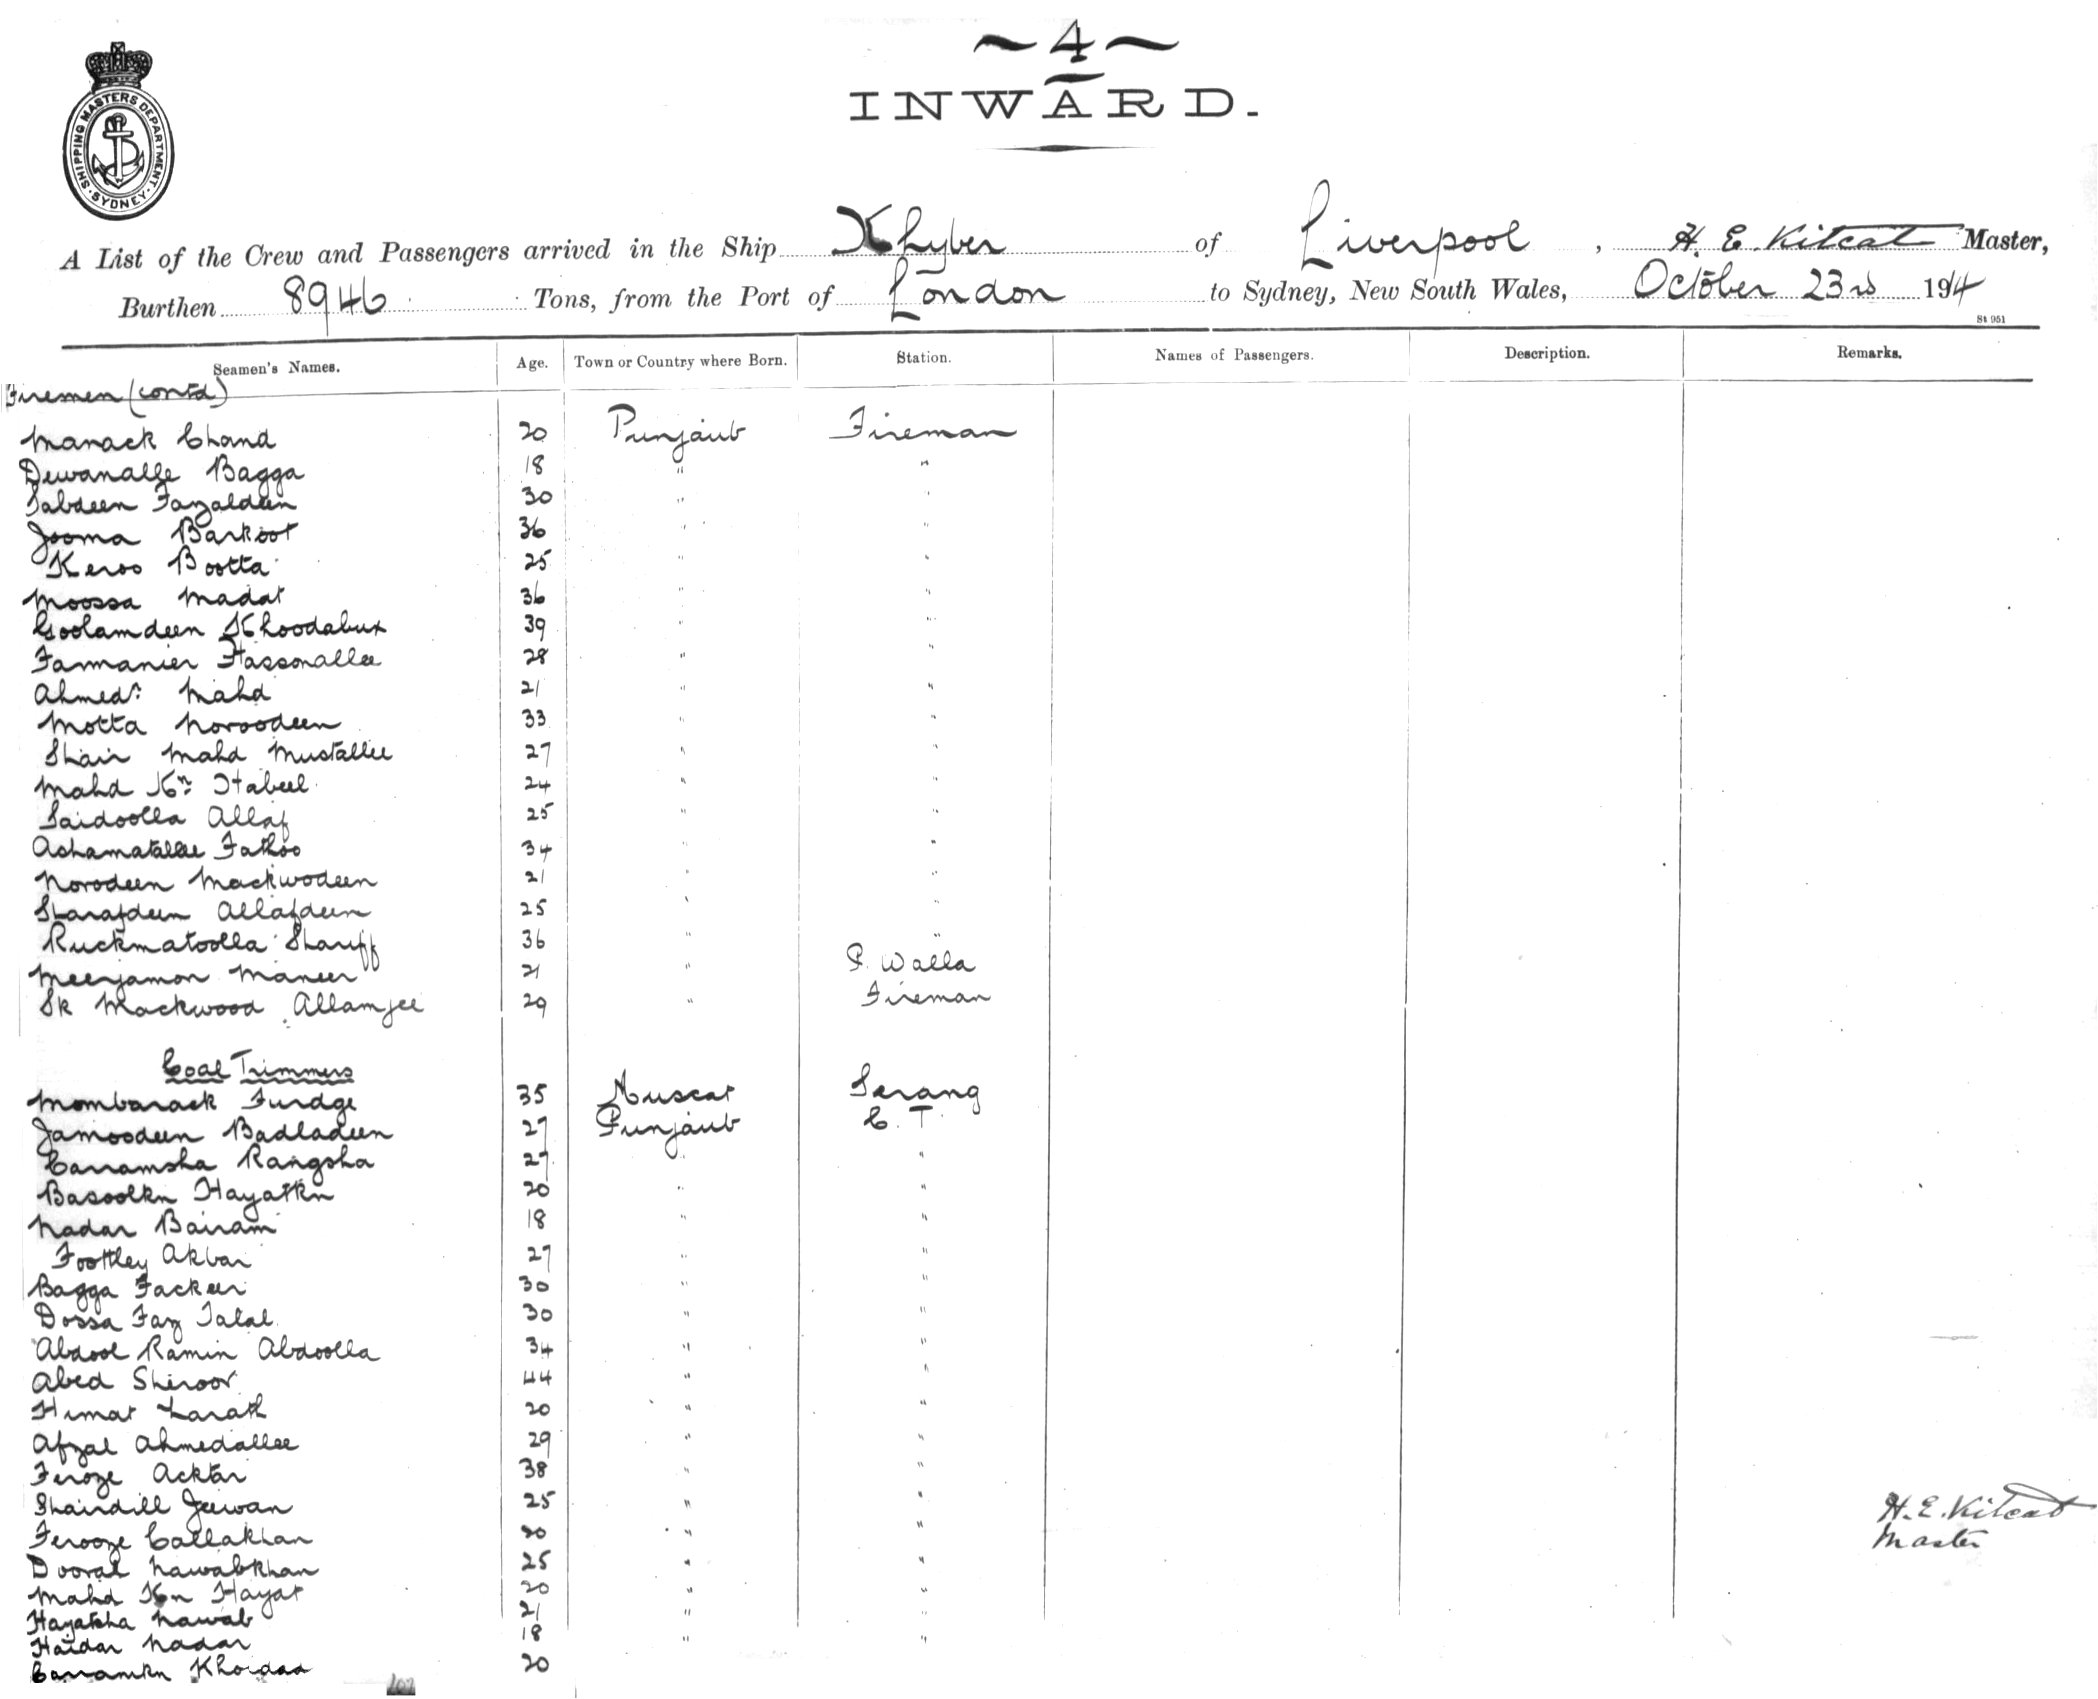 ~4~
INWARD.
SHIPPING MASTERS DEPARTMENT · SYDNEY ·
A List of the Crew and Passengers arrived in the Ship Khyber of Liverpool, H. E. Kitcat Master,
Burthen 8946 Tons, from the Port of London to Sydney, New South Wales, October 23rd 1914
St 951
Seamen's Names. Age. Town or Country where Born. Station. Names of Passengers. Description. Remarks.
Firemen (contd)
Manack Chand 20 Punjaub Fireman
Dewanalle Bagga 18 " "
Sabdeen Fazaldeen 30 " "
Jooma Barkoot 36 " "
Keroo Bootta 25 " "
Moossa Madat 36 " "
Goolamdeen Khoodabux 39 "
Farmanier Hassonallee 28 " "
Ahmed Mahd 21 " "
Motta Noroodeen 33 " "
Shair Mahd Mustallee 27 " "
Mahd Kn Habeel 24 " "
Saidoolla Allaf 25 " "
Ashamatallee Fathoo 34 " "
Norodeen Mackwodeen 21 " "
Sharafdeen Allafdeen 25 " "
Ruckmatoolla Shariff 36 " "
Meerjamon Maneer 21 " P. Walla
Sk Mackwood Allamjee 29 " Fireman
Coal Trimmers
Mombarack Furdge 35 Muscat Serang
Jamoodeen Badladeen 27 Punjaub C. T.
Carramsha Rangsha 27 " "
Basoolkn Hayatkn 20 " "
Nadar Bairam 18 " "
Foottley Akbar 27 " "
Bagga Fackeer 30 " "
Dossa Faz Talal 30 " "
Abdool Ramin Abdoolla 34 " "
Abed Sheroor 44 " "
Himat Zarath 20 " "
Afzal Ahmedallee 29 " "
Feroze Acktar 38 " "
Shairdill Jeewan 25 " "
H. E. Kitcat
Ferooze Callakhan 20 " "
Master
Dooral Nawabkhan 25 " "
Mahd Kn Hayat 20 " "
Hayatsha Nawab 21 " "
Haidar Nadar 18 " "
Carramkn Khoidad 20